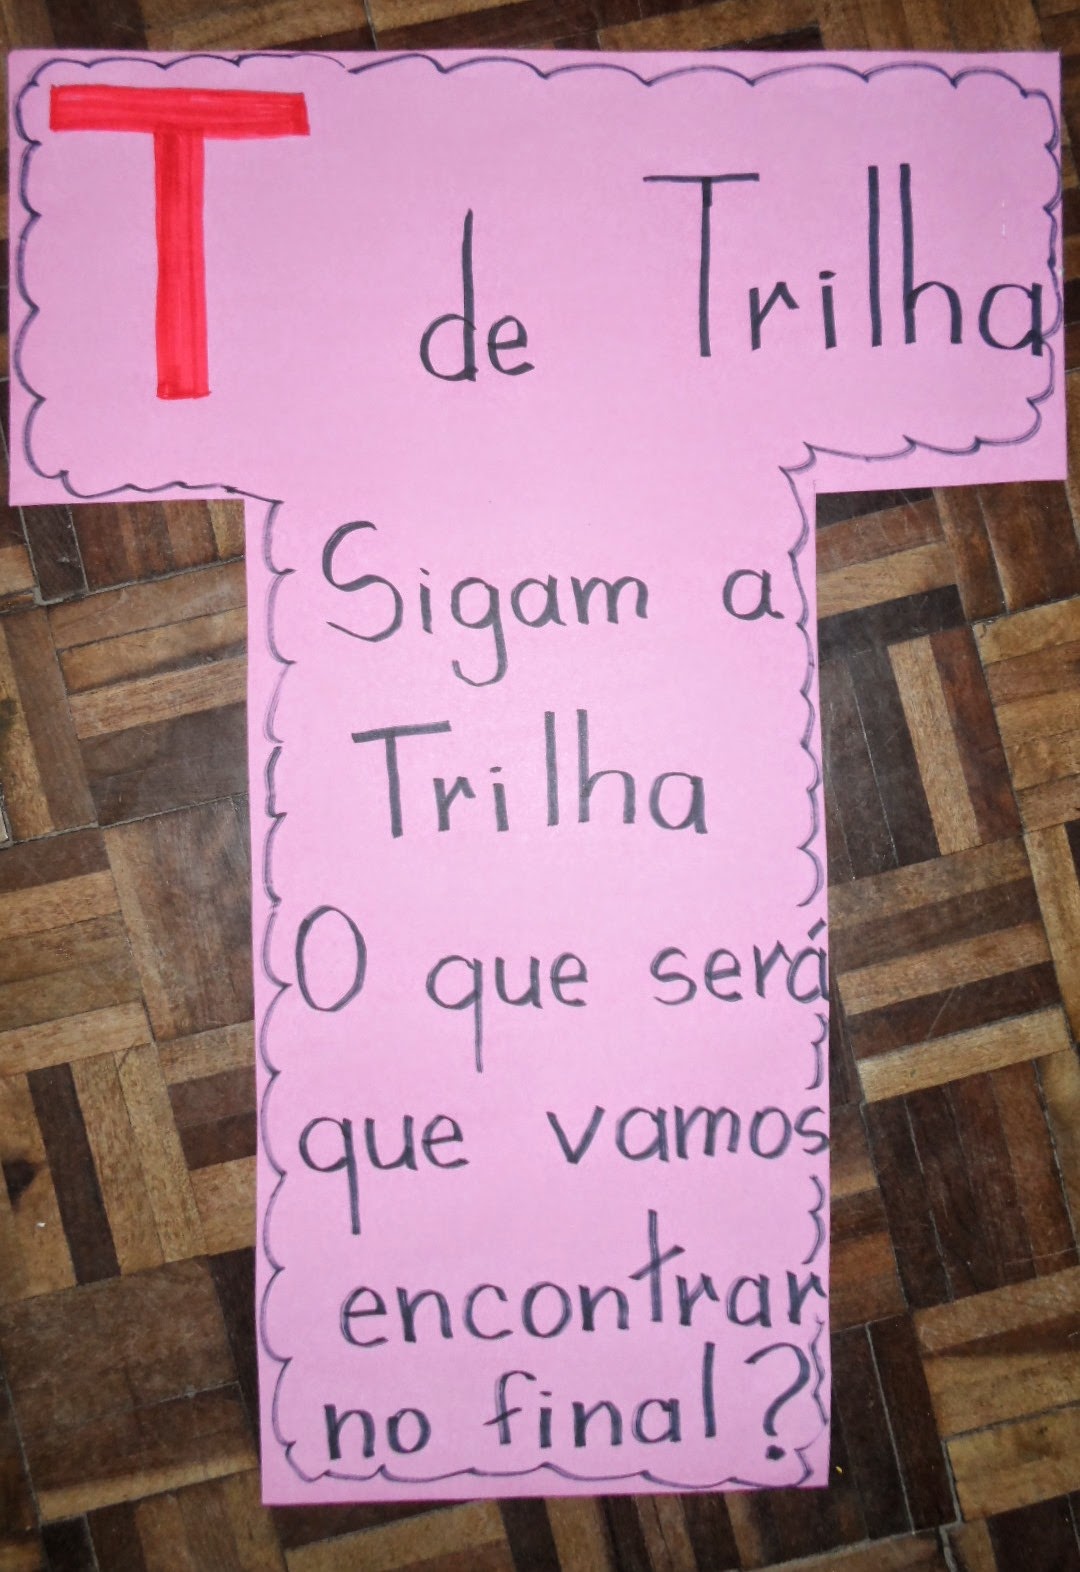 T de Trilha
Sigam a
Trilha
O que será
que vamos
encontrar
no final?